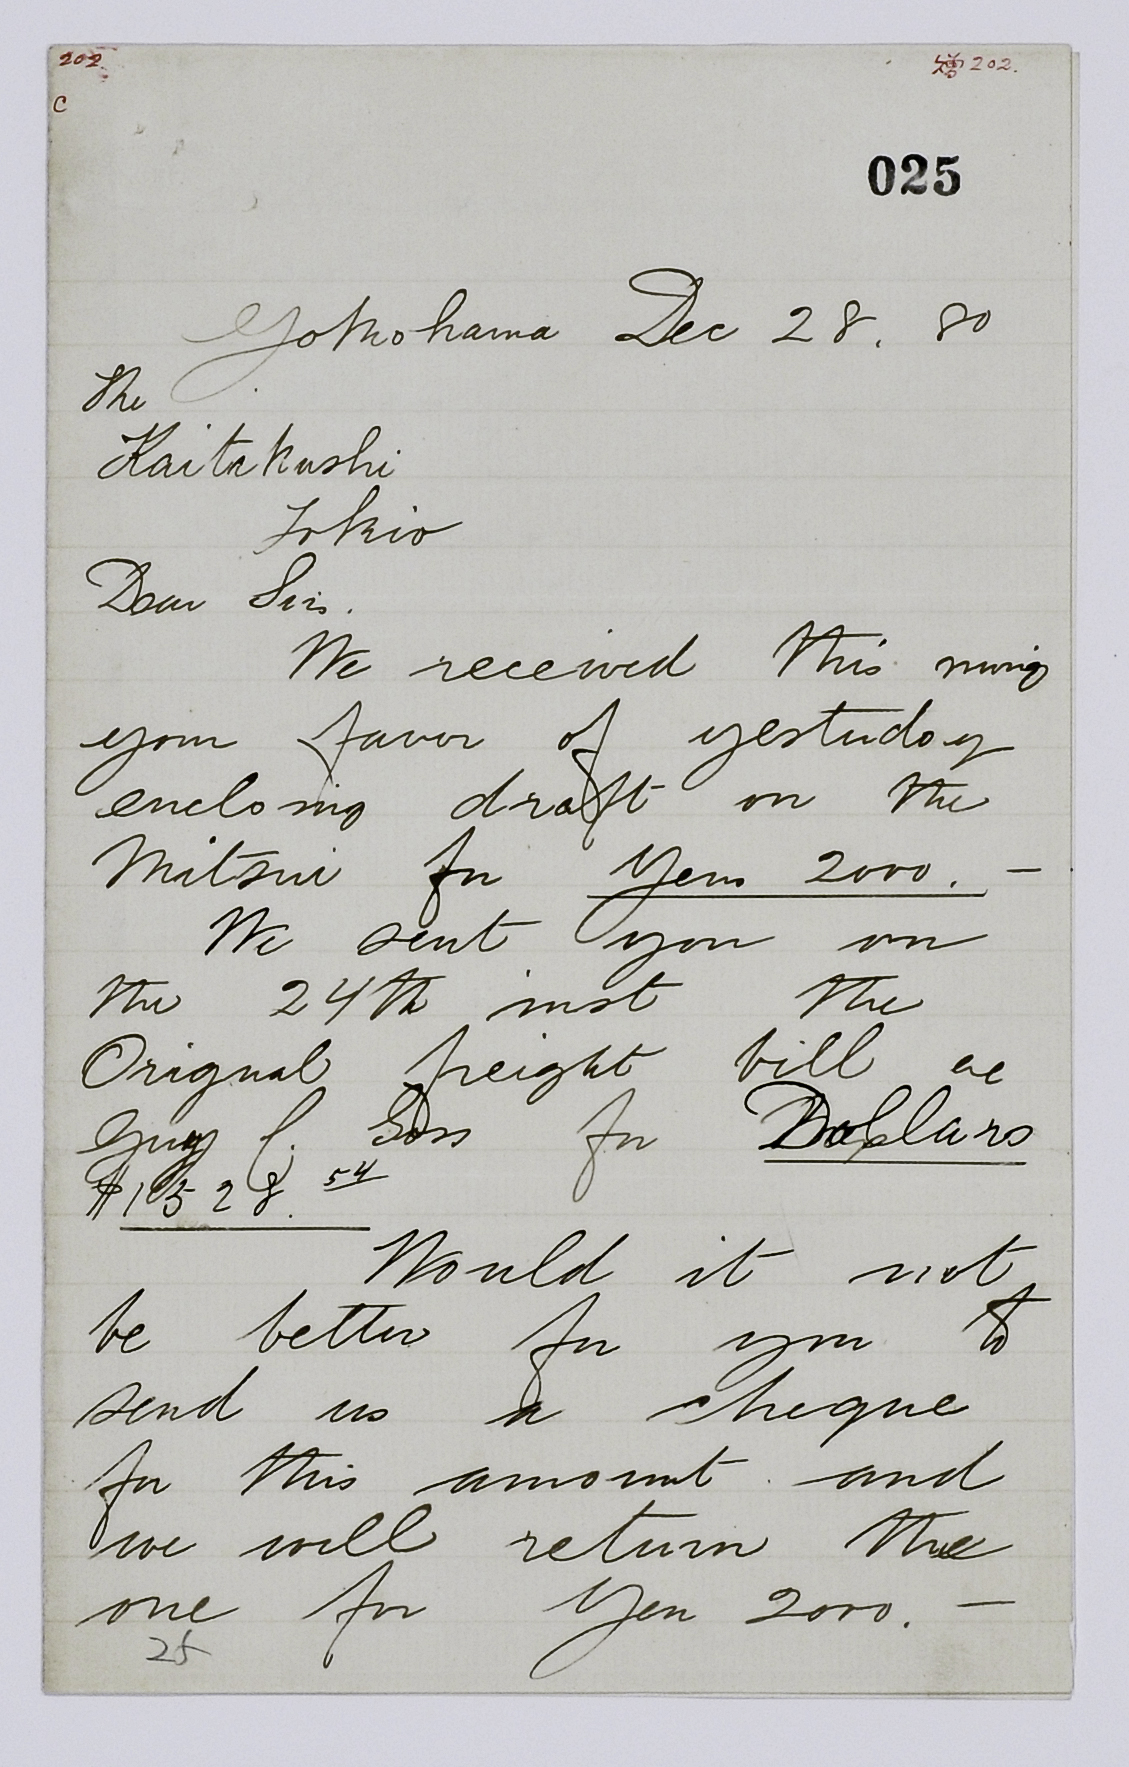 202
C
202.
025
Yokohama Dec 28. 80
The
Kaitakushi
Tokio
Dear Sirs.
We received this
your favor of yesterday
enclosing draft on the
Mitsui for Yens 2000. —
We sent you on
the 24th inst the
Original freight bill
Guy C. Goss for Dollars
$1528.54
Would it not
be better for you to
send us a cheque
for this amount and
we will return the
one for Yen 2000. —
25